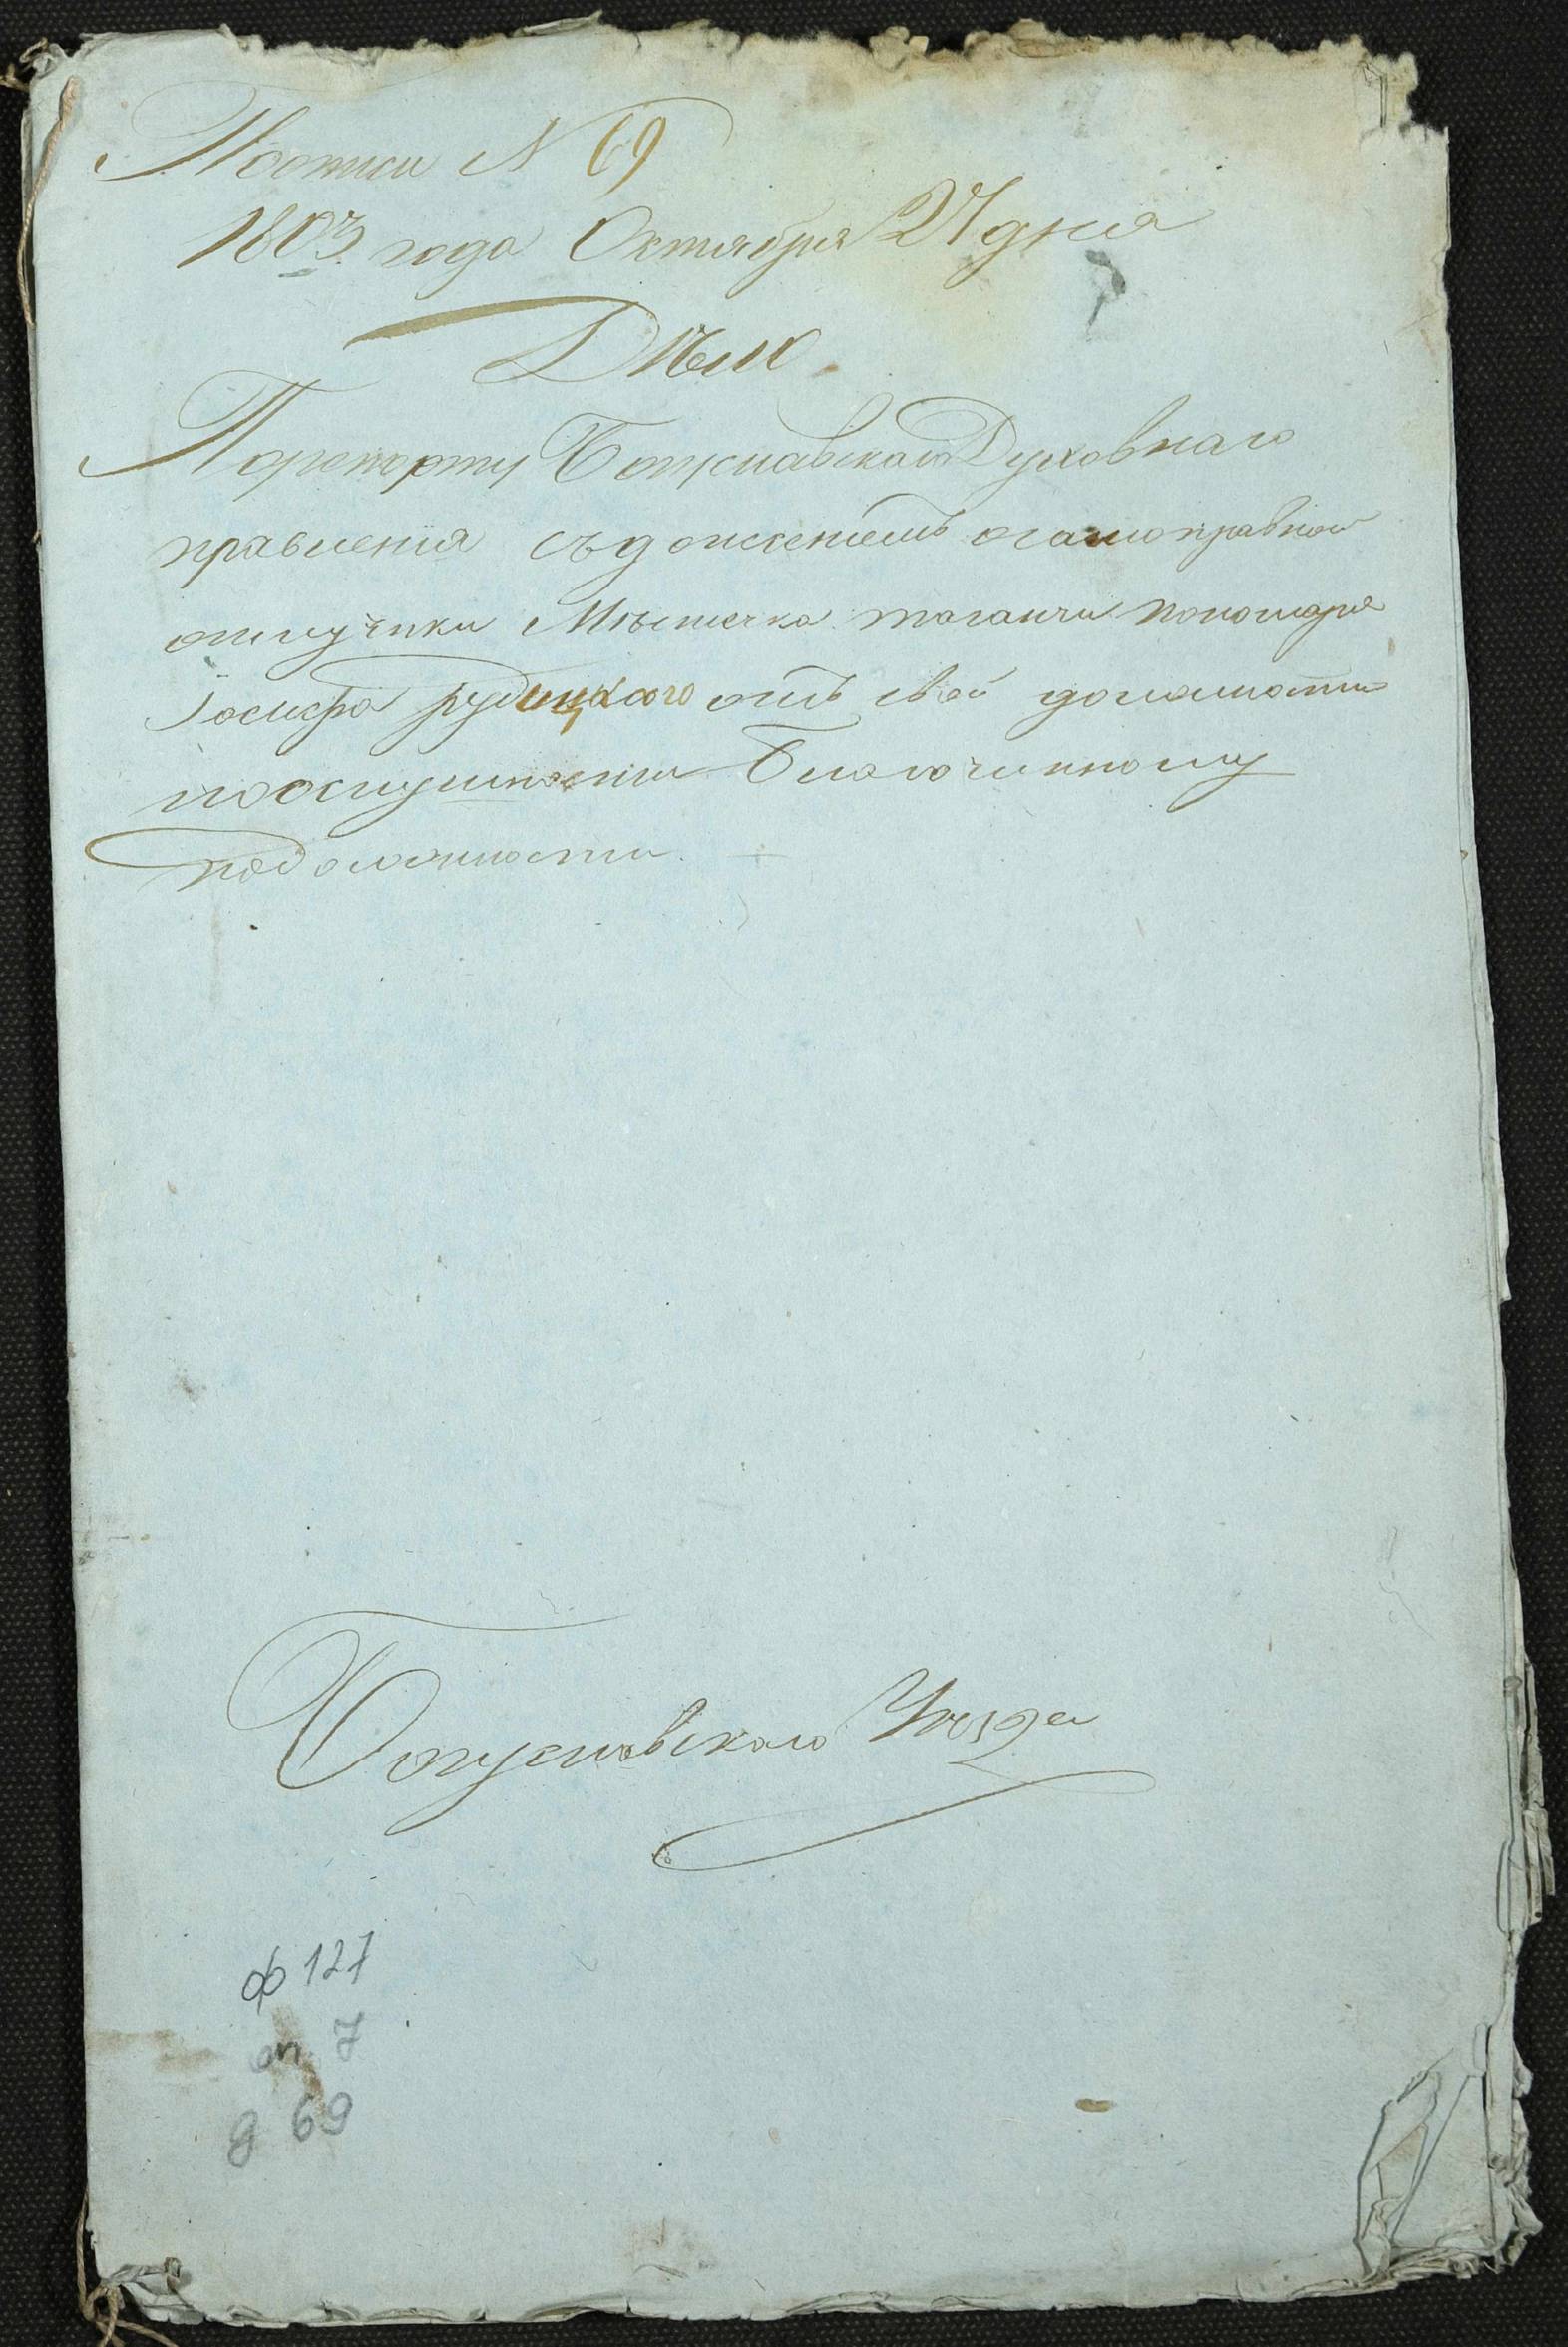 Поописи N 69
1803 года Октября 24 дня
Дѣло
Порепорту Богуславского Духовнаго
правления съдонесениемъ осамоправной
отлучики Мѣстечка таганчи пономаря
Іосифа рудицкого отъ своей должности
послушности Благочинному
Богуславского Уѣзда
ф 127
оп 7
д 69